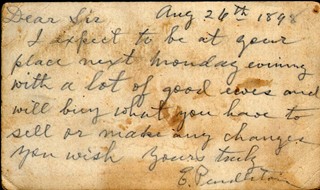 Dear Sir Aug 26th 1898
I expect to be at your
place next Monday evining
with a lot of good ewes and
will buy what you have to
sell or make any change
you wish Yours truly
E. Pendleton